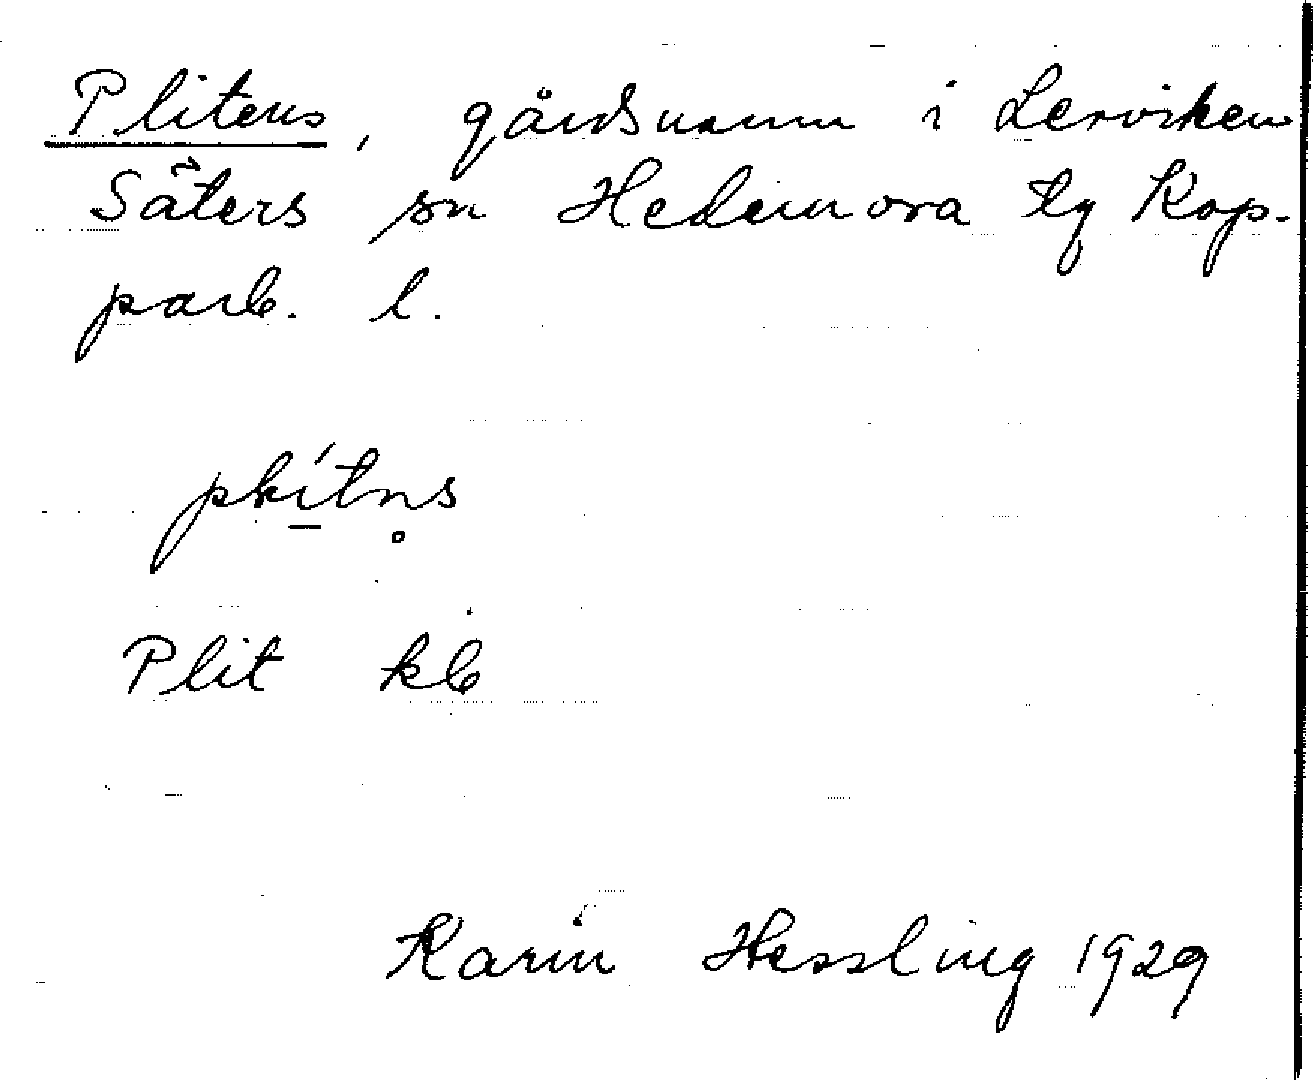 Plitens, gårdsnamn i Lerviken
Säters sn Hedemora tg Kop-
parb. l.
plítn̥s
Plit kb
Karin Hessling 1929